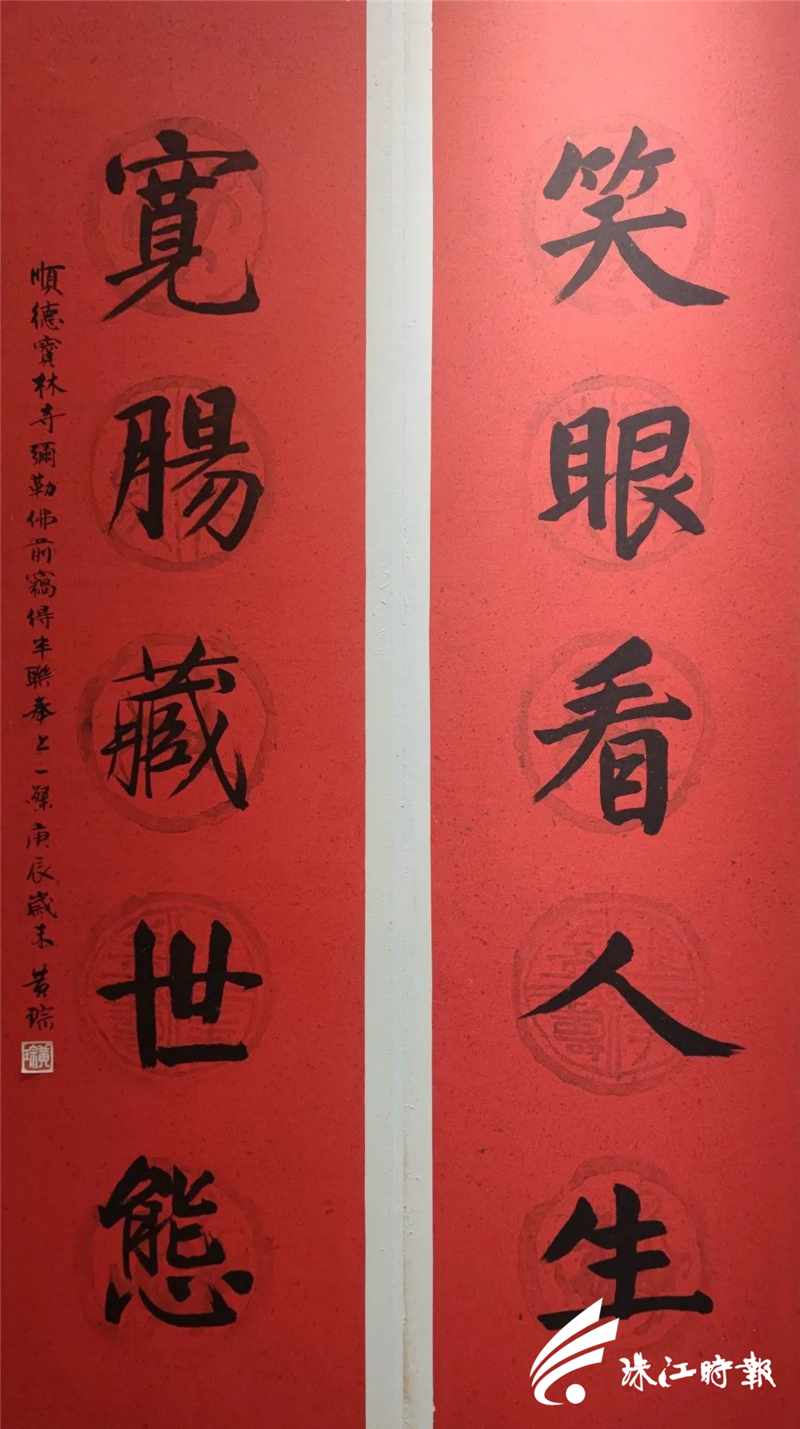 笑眼看人生
寬腸藏世態
順德寶林寺彌勒佛前竊得半聯奉上一粲庚辰歲末 黃琮
珠江時報